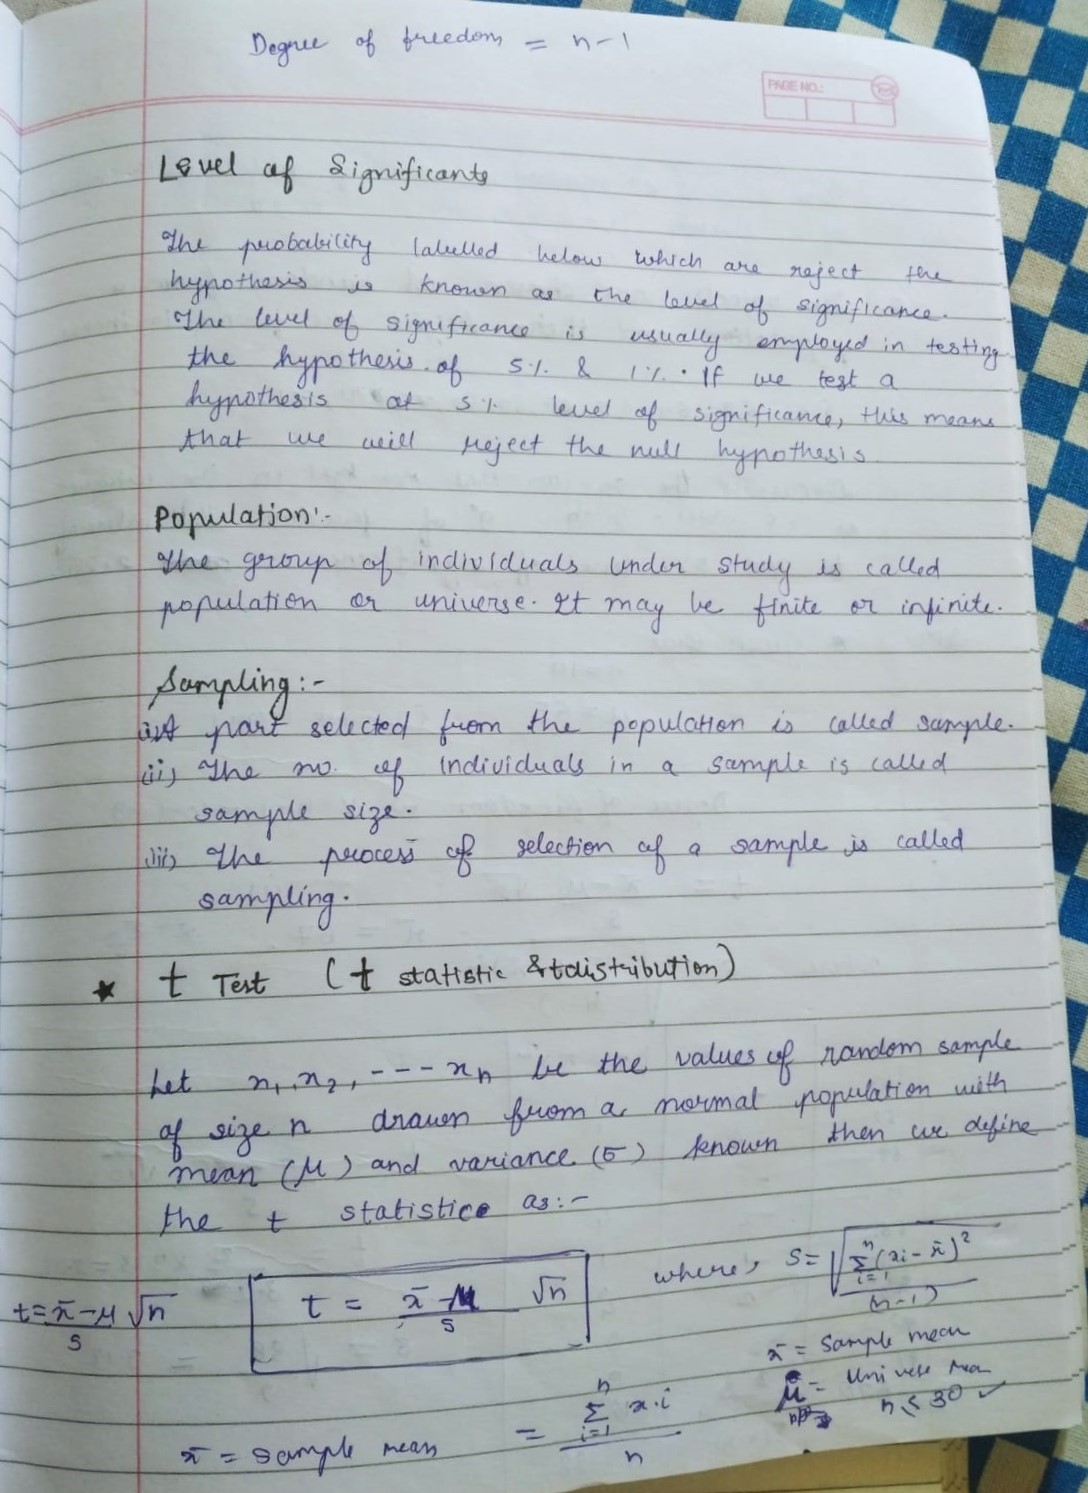 Degree of freedom = n-1
PAGE NO.:
Level of Significants
The probability labelled below which are reject the
hypothesis is known as the level of significance.
The level of significance is usually employed in testing
the hypothesis of 5% & 1%. If we test a
hypothesis at 5% level of significance, this means
that we will reject the null hypothesis
Population:-
The group of individuals under study is called
population or universe. It may be finite or infinite.
Sampling:-
(i) A part selected from the population is called sample.
(ii) The no. of individuals in a sample is called
sample size.
(iii) The process of selection of a sample is called
sampling.
★ t Test (t statistic & t distribution)
Let x₁, x₂, --- xₙ be the values of random sample
of size n drawn from a normal population with
mean (μ) and variance (σ) known then we define
the t statistics as:-
t = x̄-μ/s √n
t = x̄-μ/s √n where, S = √(Σⁿᵢ₌₁(xi-x̄)²/(n-1))
x̄ = Sample mean
μ = Universe mean
n ≤ 30 ✓
x̄ = Sample mean = Σⁿᵢ₌₁ x.i / n